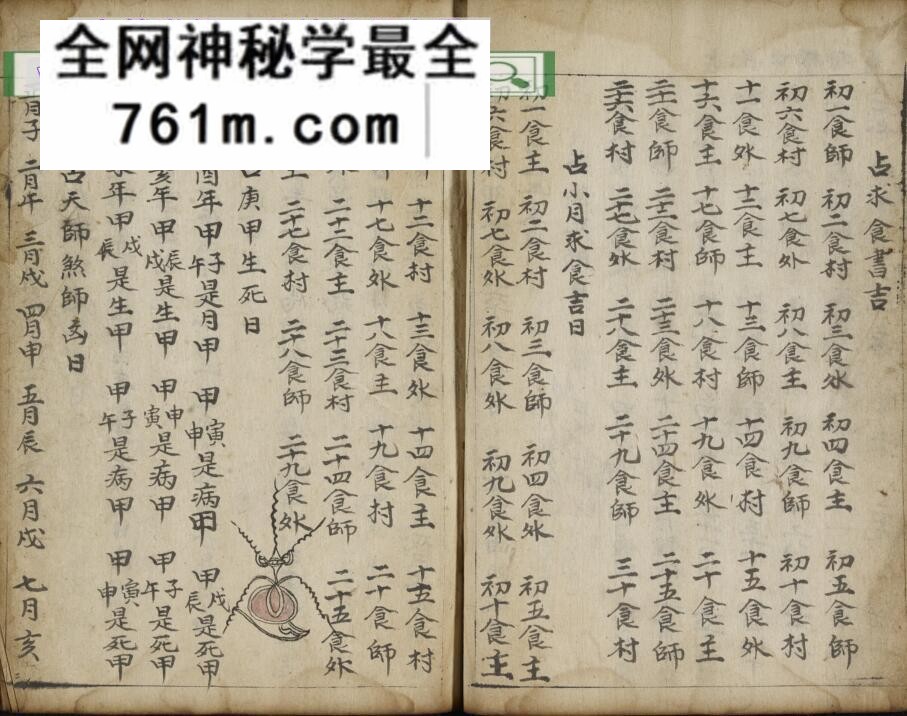 全网神秘学最全
761m.com
占求食書吉
初一食師 初二食村 初三食外 初四食主 初五食師
初六食村 初七食外 初八食主 初九食師 初十食村
十一食外 十二食主 十三食師 十四食村 十五食外
十六食主 十七食師 十八食村 十九食外 二十食主
二十一食師 二十二食村 二十三食外 二十四食主 二十五食師
二十六食村 二十七食外 二十八食主 二十九食師 三十食村
占小月求食吉日
初一食主 初二食村 初三食師 初四食外 初五食主
初六食村 初七食外 初八食外 初九食外 初十食主
十二食村 十三食外 十四食主 十五食村
十七食外 十八食主 十九食村 二十食師
二十二食主 二十三食村 二十四食師 二十五食外
二十七食村 二十八食師 二十九食外
庚甲生死日
酉年甲子午是月甲 甲寅申是病甲 甲戌辰是死甲
亥年甲辰戌是生甲 甲申寅是病甲 甲子午是死甲
年甲戌辰是生甲 甲子午是病甲 甲寅申是死甲
占天師煞師凶日
正月子 二月午 三月戌 四月申 五月辰 六月戌 七月亥